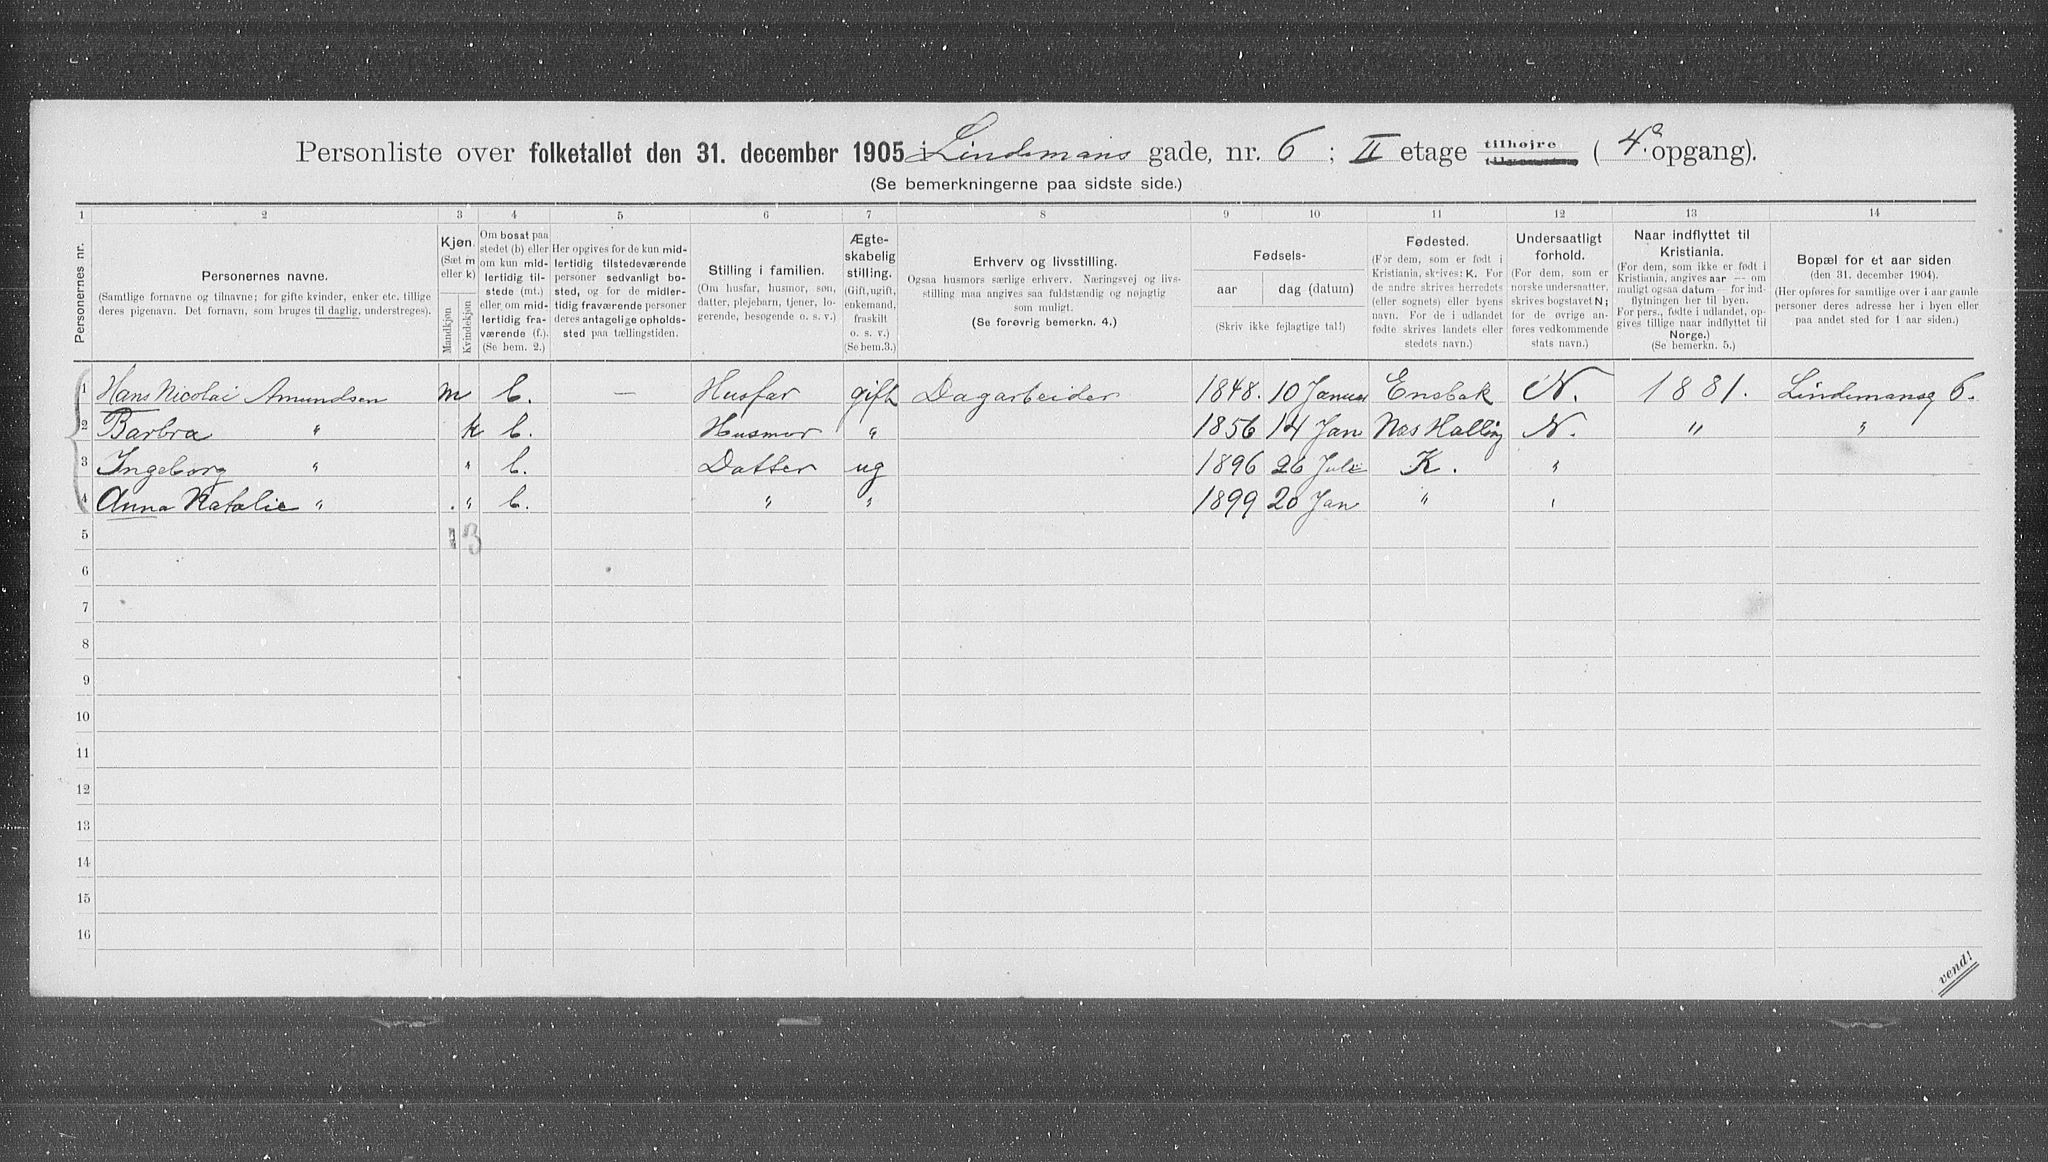 Personliste over folketallet den 31. december 1905 i Lindemans gade, nr. 6 ; II etage tilhøjre tilvenstre ( 4de opgang).
(Se bemerkningerne paa sidste side.)
1 2 3 4 5 6 7 8 9 10 11 12 13 14
Personernes nr.
Personernes navne.
(Samtlige fornavne og tilnavne; for gifte kvinder, enker etc. tillige
deres pigenavn. Det fornavn, som bruges til daglig, understreges).
Kjøn.
(Sæt m
eller k)
Mandkjøn
Kvindekjøn
Om bosat paa
stedet (b) eller
om kun mid-
lertidig til-
stede (mt.)
eller om mid-
lertidig fra-
værende (f.).
(Se bem. 2.)
Her opgives for de kun mid-
lertidig tilstedeværende
personer sedvanligt bo-
sted, og for de midler-
tidig fraværende personer
deres antagelige opholds-
sted paa tællingstiden.
Stilling i familien.
(Om husfar, husmor, søn,
datter, plejebarn, tjener, lo-
gerende, besøgende o. s. v.)
Ægte-
skabelig
stilling.
(Gift, ugift,
enkemand,
fraskilt
o. s. v.)
(Se bem.3.)
Erhverv og livsstilling.
Ogsaa husmors særlige erhverv. Næringsvej og livs-
stilling maa angives saa fuldstændig og nøjagtig
som muligt.
(Se forøvrig bemerkn. 4.)
Fødsels-
aar dag (datum)
(Skriv ikke fejlagtige tal!)
Fødested.
(For dem, som er født i
Kristiania, skrives: K. For
de andre skrives herredets
(eller sognets) eller byens
navn. For de i udlandet
fødte skrives landets eller
stedets navn.)
Undersaatligt
forhold.
(For dem, som er
norske undersatter,
skrives bogstavet N;
for de øvrige an-
føres vedkommende
stats navn.)
Naar indflyttet til
Kristiania.
(For dem, som ikke er født i
Kristiania, angives aar — om
muligt ogsaa datum — for ind-
flytningen her til byen.
For pers., fødte i udlandet, op-
gives tillige naar indflyttet til
Norge.)
(Se bemerkn. 5.)
Bopæl for et aar siden
(den 31. december 1904).
(Her opføres for samtlige over 1 aar gamle
personer deres adresse her i byen eller
paa andet sted for 1 aar siden.)
1 Hans Nicolai Amundsen m b. — Husfar gift Dagarbeider 1848. 10 Januar Ensbak N. 1881. Lindemansg 6.
2 Barbra " k b. Husmor " 1856 14 Jan Nes Halling N. " "
3 Ingeborg " " b. Datter ug 1896 26 Juli K. "
4 Anna Natalie " . " b. " " 1899 20 Jan " "
5 1 3
6
7
8
9
10
11
12
13
14
15
16
vend!